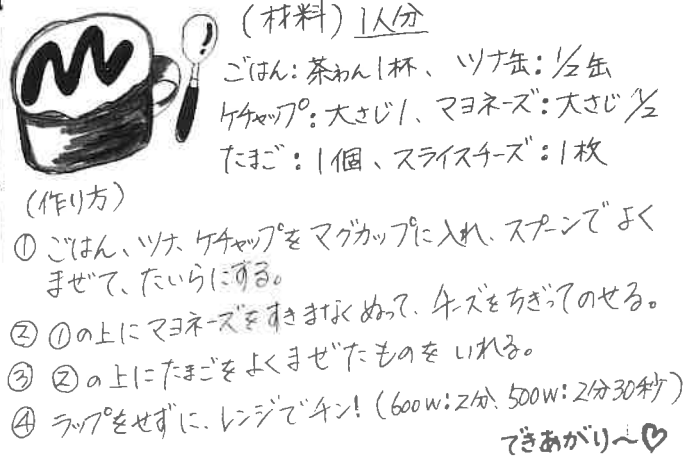 (材料) 1人分
ごはん:茶わん1杯、ツナ缶:1/2缶
ケチャップ:大さじ1、マヨネーズ:大さじ1/2
たまご:1個、スライスチーズ:1枚
(作り方)
① ごはん、ツナ、ケチャップをマグカップに入れ、スプーンでよく
まぜて、たいらにする。
② ①の上にマヨネーズをすきまなくぬって、チーズをちぎってのせる。
③ ②の上にたまごをよくまぜたものをいれる。
④ ラップをせずに、レンジでチン!(600W:2分、500W:2分30秒)
できあがり〜♡